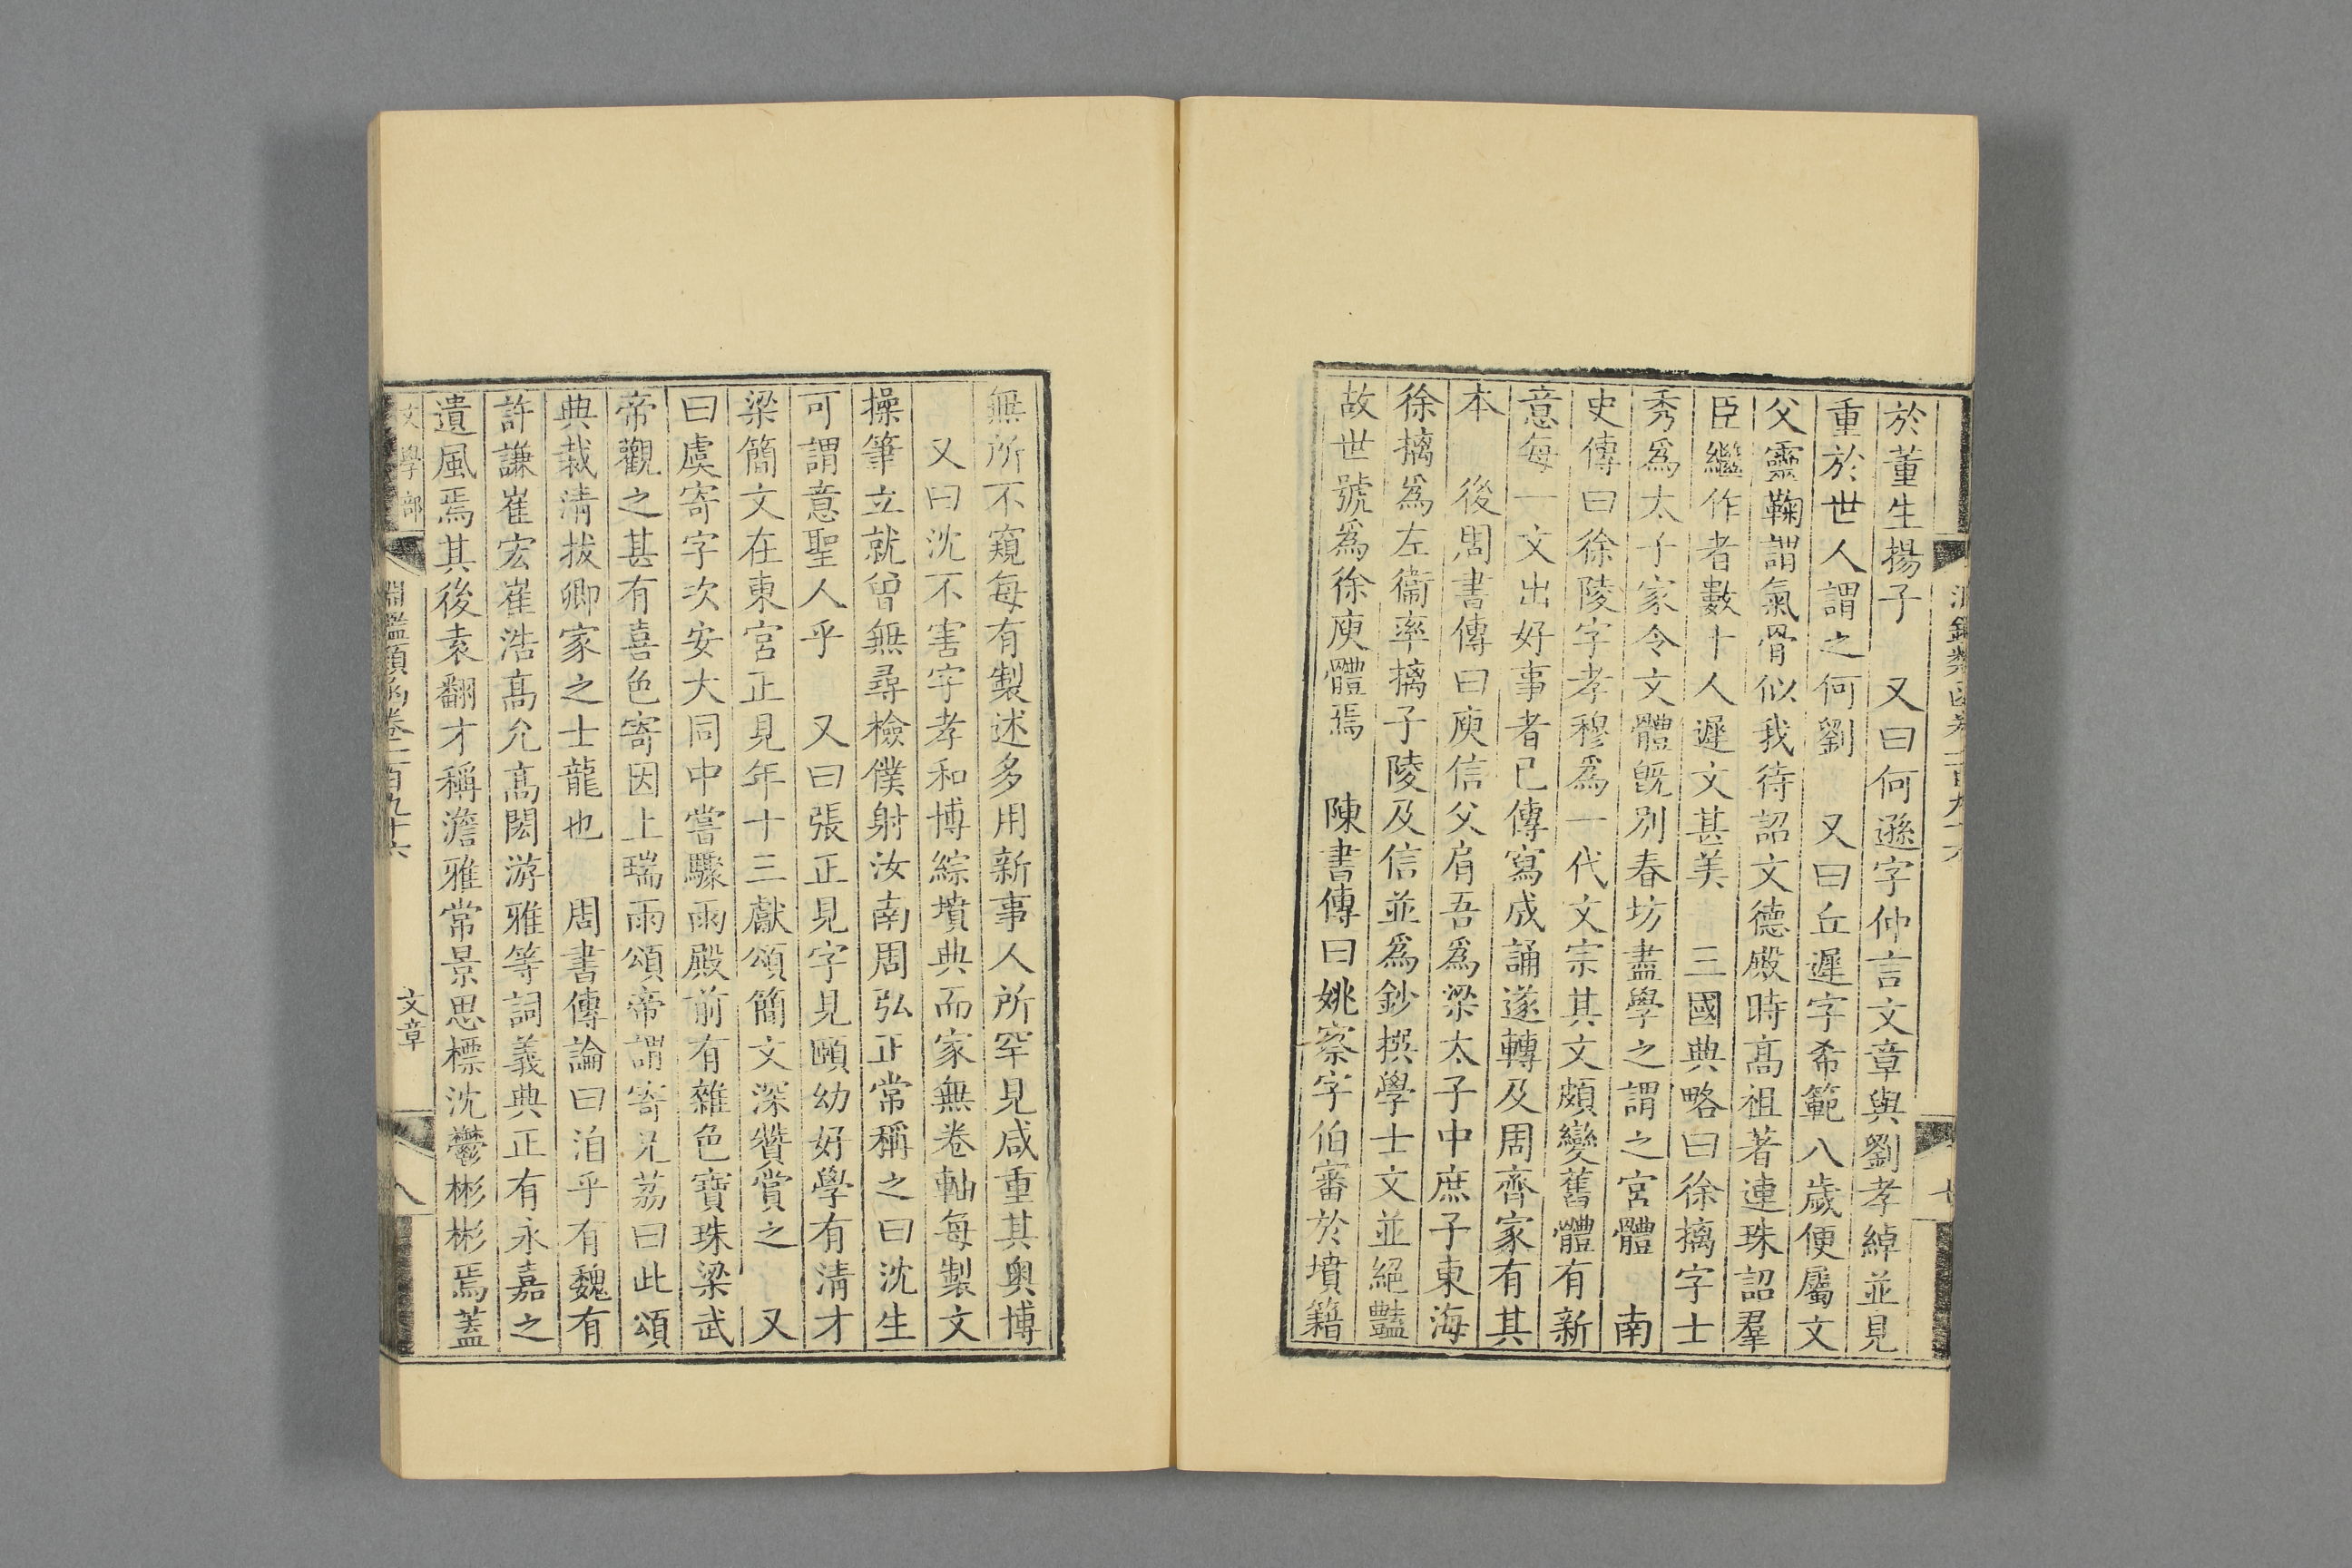 於董生揚子　又曰何遜字仲言文章與劉孝綽並見
重於世人謂之何劉　又曰丘遲字希範八歲便屬文
父靈鞠謂氣骨似我待詔文德殿時高祖著連珠詔羣
臣繼作者數十人遲文甚美　三國典略曰徐摛字士
秀爲太子家令文體旣別春坊盡學之謂之宮體　南
史傳曰徐陵字孝穆爲一代文宗其文頗變舊體有新
意每一文出好事者已傳寫成誦遂轉及周齊家有其
本　後周書傳曰庾信父肩吾爲梁太子中庶子東海
徐摛爲左衞率摛子陵及信並爲鈔撰學士文並絕豔
故世號爲徐庾體焉　陳書傳曰姚察字伯審於墳籍
無所不窺每有製述多用新事人所罕見咸重其奥博
又曰沈不害字孝和博綜墳典而家無卷軸每製文
操筆立就曾無尋檢僕射汝南周弘正常稱之曰沈生
可謂意聖人乎　又曰張正見字見賾幼好學有清才
梁簡文在東宮正見年十三獻頌簡文深贊賞之　又
曰虞寄字次安大同中嘗驟雨殿前有雜色寶珠梁武
帝觀之甚有喜色寄因上瑞雨頌帝謂寄兄荔曰此頌
典裁清拔卿家之士龍也　周書傳論曰洎乎有魏有
許謙崔宏崔浩高允高閭游雅等詞義典正有永嘉之
遺風焉其後袁翻才稱澹雅常景思標沈鬱彬彬焉蓋
文學部　淵鑑類函卷一百九十六　文章　八